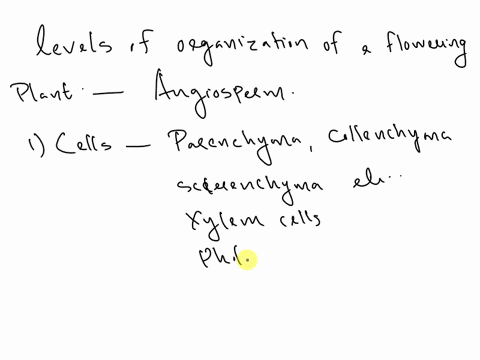 levels of organization of a flowering
Plant — Angiosperm.
1) Cells — Parenchyma, Collenchyma
sclerenchyma etc..
Xylem cells
Phl